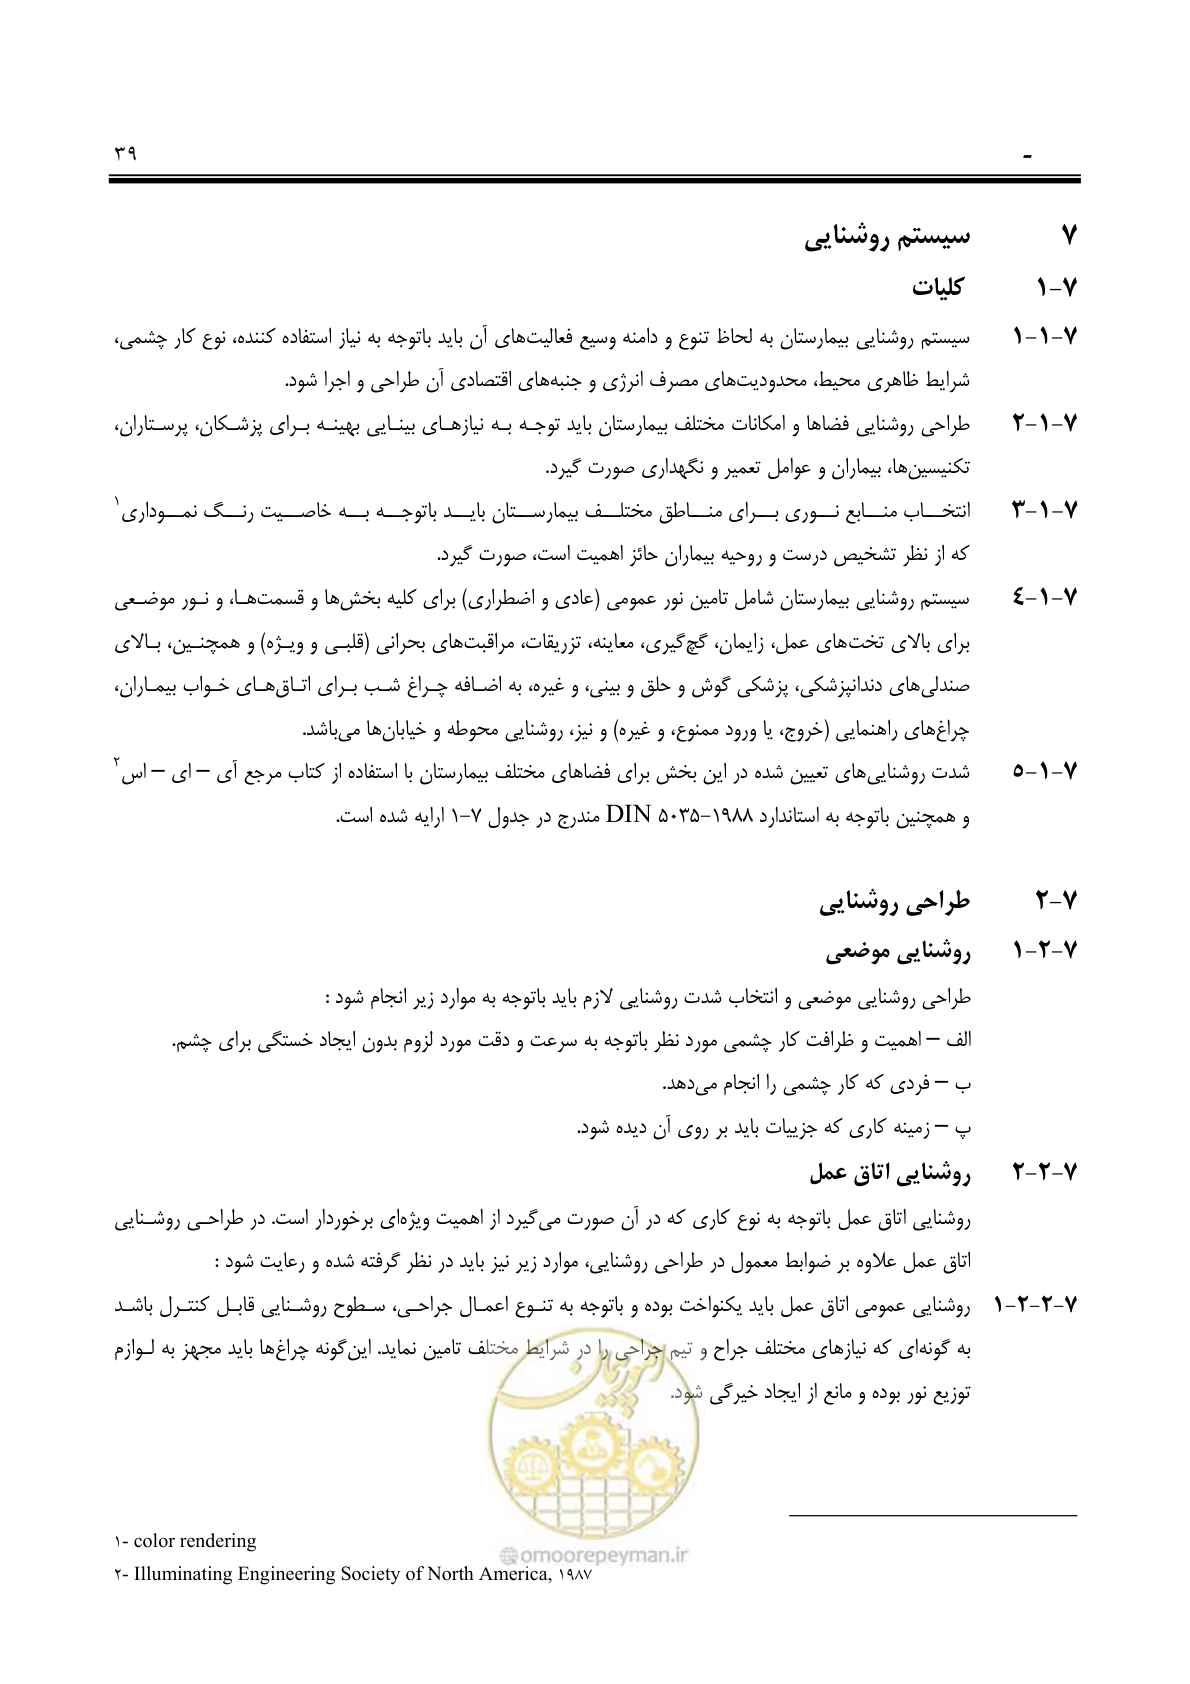 ۳۹ -
۷ سیستم روشنایی
۷-۱ کلیات
۷-۱-۱ سیستم روشنایی بیمارستان به لحاظ تنوع و دامنه وسیع فعالیت‌های آن باید باتوجه به نیاز استفاده کننده، نوع کار چشمی،
شرایط ظاهری محیط، محدودیت‌های مصرف انرژی و جنبه‌های اقتصادی آن طراحی و اجرا شود.
۷-۱-۲ طراحی روشنایی فضاها و امکانات مختلف بیمارستان باید توجه به نیازهای بینایی بهینه برای پزشکان، پرستاران،
تکنیسین‌ها، بیماران و عوامل تعمیر و نگهداری صورت گیرد.
۷-۱-۳ انتخاب منابع نوری برای مناطق مختلف بیمارستان باید باتوجه به خاصیت رنگ نموداری۱
که از نظر تشخیص درست و روحیه بیماران حائز اهمیت است، صورت گیرد.
۷-۱-۴ سیستم روشنایی بیمارستان شامل تامین نور عمومی (عادی و اضطراری) برای کلیه بخش‌ها و قسمت‌ها، و نور موضعی
برای بالای تخت‌های عمل، زایمان، گچ‌گیری، معاینه، تزریقات، مراقبت‌های بحرانی (قلبی و ویژه) و همچنین، بالای
صندلی‌های دندانپزشکی، پزشکی گوش و حلق و بینی، و غیره، به اضافه چراغ شب برای اتاق‌های خواب بیماران،
چراغ‌های راهنمایی (خروج، یا ورود ممنوع، و غیره) و نیز، روشنایی محوطه و خیابان‌ها می‌باشد.
۷-۱-۵ شدت روشنایی‌های تعیین شده در این بخش برای فضاهای مختلف بیمارستان با استفاده از کتاب مرجع آی – ای – اس۲
و همچنین باتوجه به استاندارد DIN ۵۰۳۵-۱۹۸۸ مندرج در جدول ۷-۱ ارایه شده است.
۷-۲ طراحی روشنایی
۷-۲-۱ روشنایی موضعی
طراحی روشنایی موضعی و انتخاب شدت روشنایی لازم باید باتوجه به موارد زیر انجام شود :
الف – اهمیت و ظرافت کار چشمی مورد نظر باتوجه به سرعت و دقت مورد لزوم بدون ایجاد خستگی برای چشم.
ب – فردی که کار چشمی را انجام می‌دهد.
پ – زمینه کاری که جزییات باید بر روی آن دیده شود.
۷-۲-۲ روشنایی اتاق عمل
روشنایی اتاق عمل باتوجه به نوع کاری که در آن صورت می‌گیرد از اهمیت ویژه‌ای برخوردار است. در طراحی روشنایی
اتاق عمل علاوه بر ضوابط معمول در طراحی روشنایی، موارد زیر نیز باید در نظر گرفته شده و رعایت شود :
۷-۲-۲-۱ روشنایی عمومی اتاق عمل باید یکنواخت بوده و باتوجه به تنوع اعمال جراحی، سطوح روشنایی قابل کنترل باشد
به گونه‌ای که نیازهای مختلف جراح و تیم جراحی را در شرایط مختلف تامین نماید. این‌گونه چراغ‌ها باید مجهز به لوازم
توزیع نور بوده و مانع از ایجاد خیرگی شود.
امور پیمان
۱- color rendering
@omoorepeyman.ir
۲- Illuminating Engineering Society of North America, ۱۹۸۷